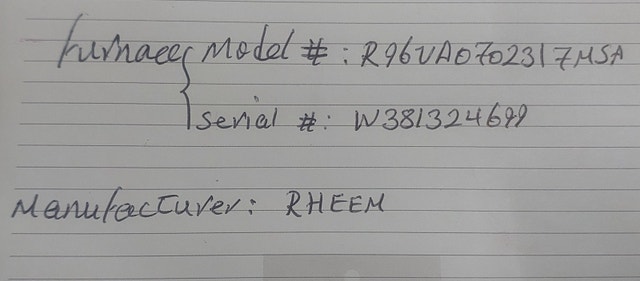 Furnace Model #: R96VA0702317MSA
Serial #: W381324699
Manufacturer: RHEEM